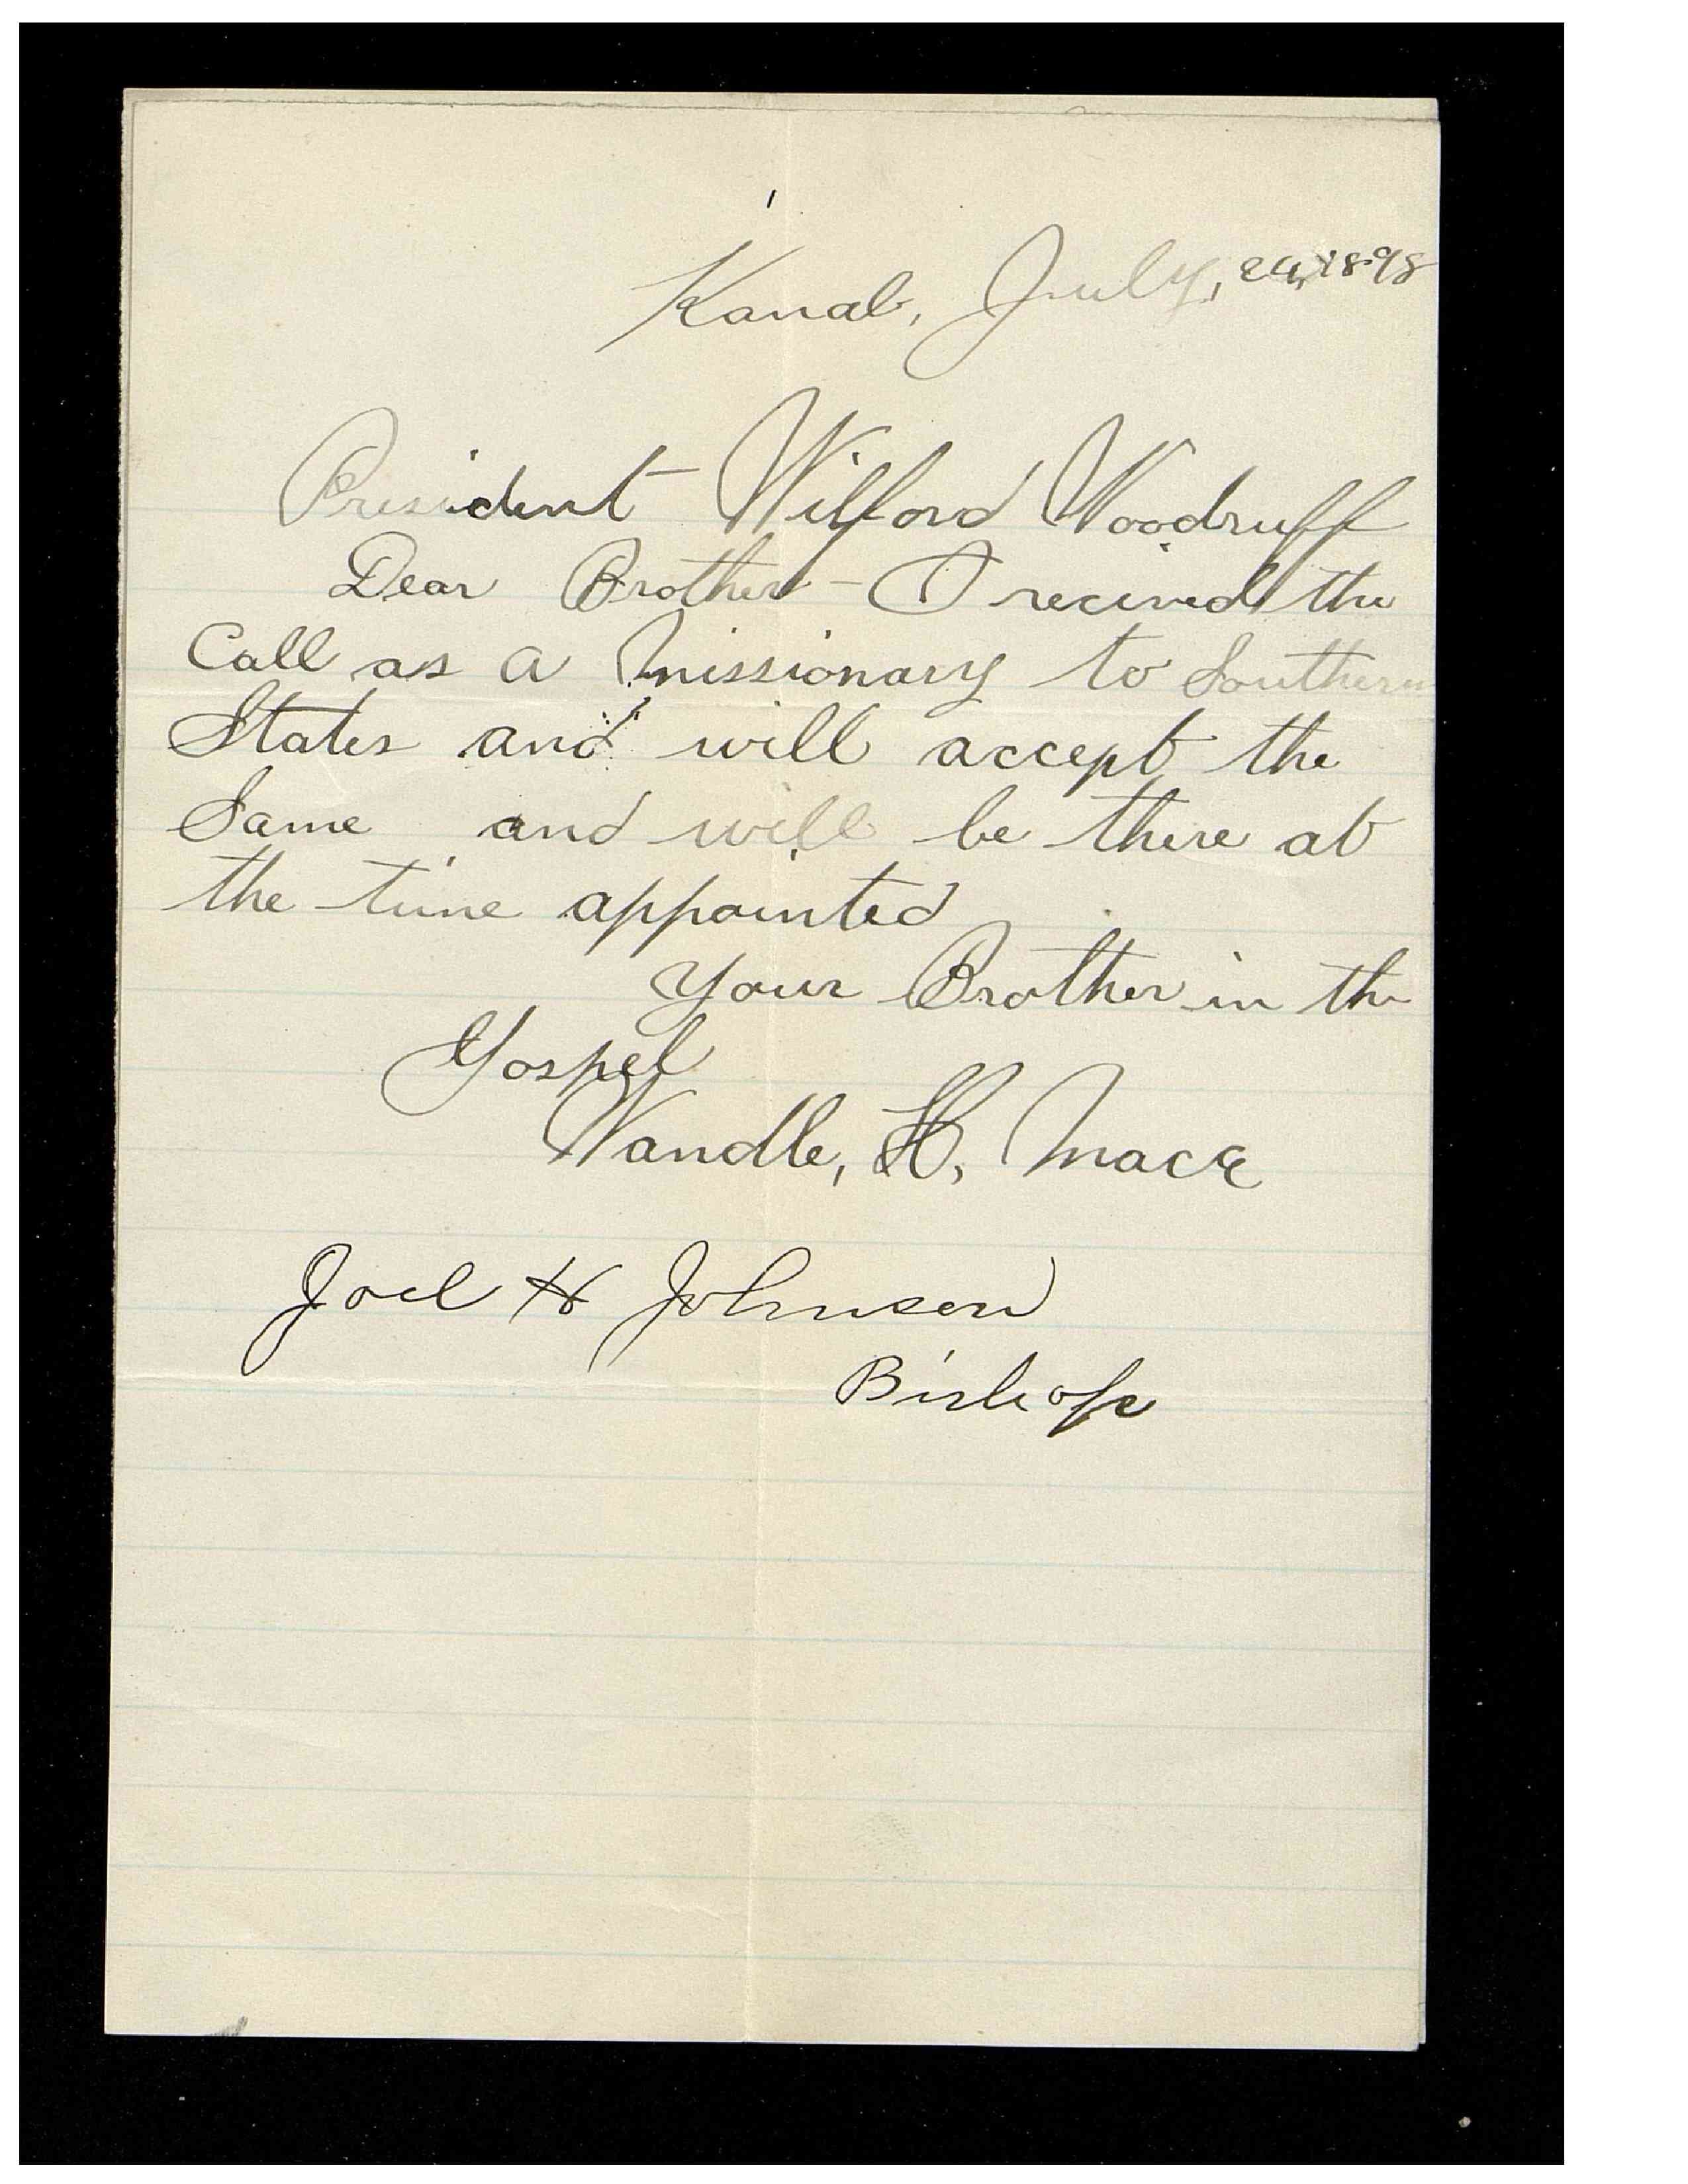 Kanab, July, 24, 1898
President Wilford Woodruff
Dear Brother - I recived the
Call as a Missionary to Southern
States and will accept the
Same and will be there at
the time appointed
Your Brother in the
Gospel
Wandle, H, Mace
Joel H Johnson
Bishop